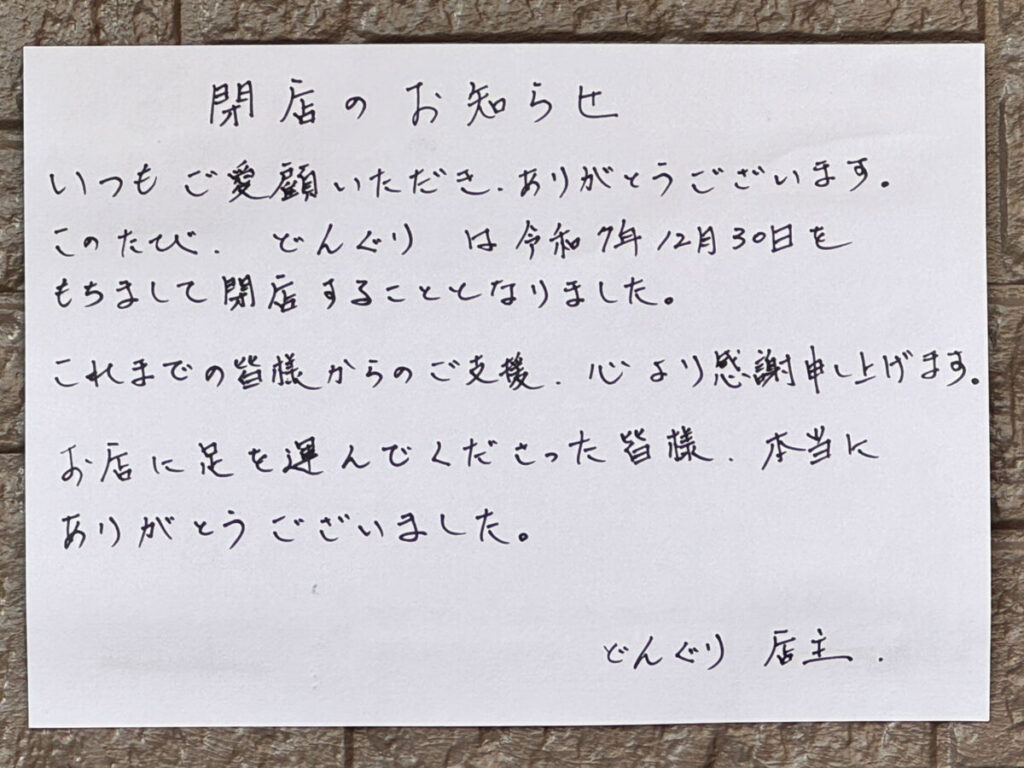 閉店のお知らせ
いつもご愛顧いただき、ありがとうございます。
このたび、どんぐり は令和7年12月30日を
もちまして閉店することとなりました。
これまでの皆様からのご支援、心より感謝申し上げます。
お店に足を運んでくださった皆様、本当に
ありがとうございました。
どんぐり 店主.